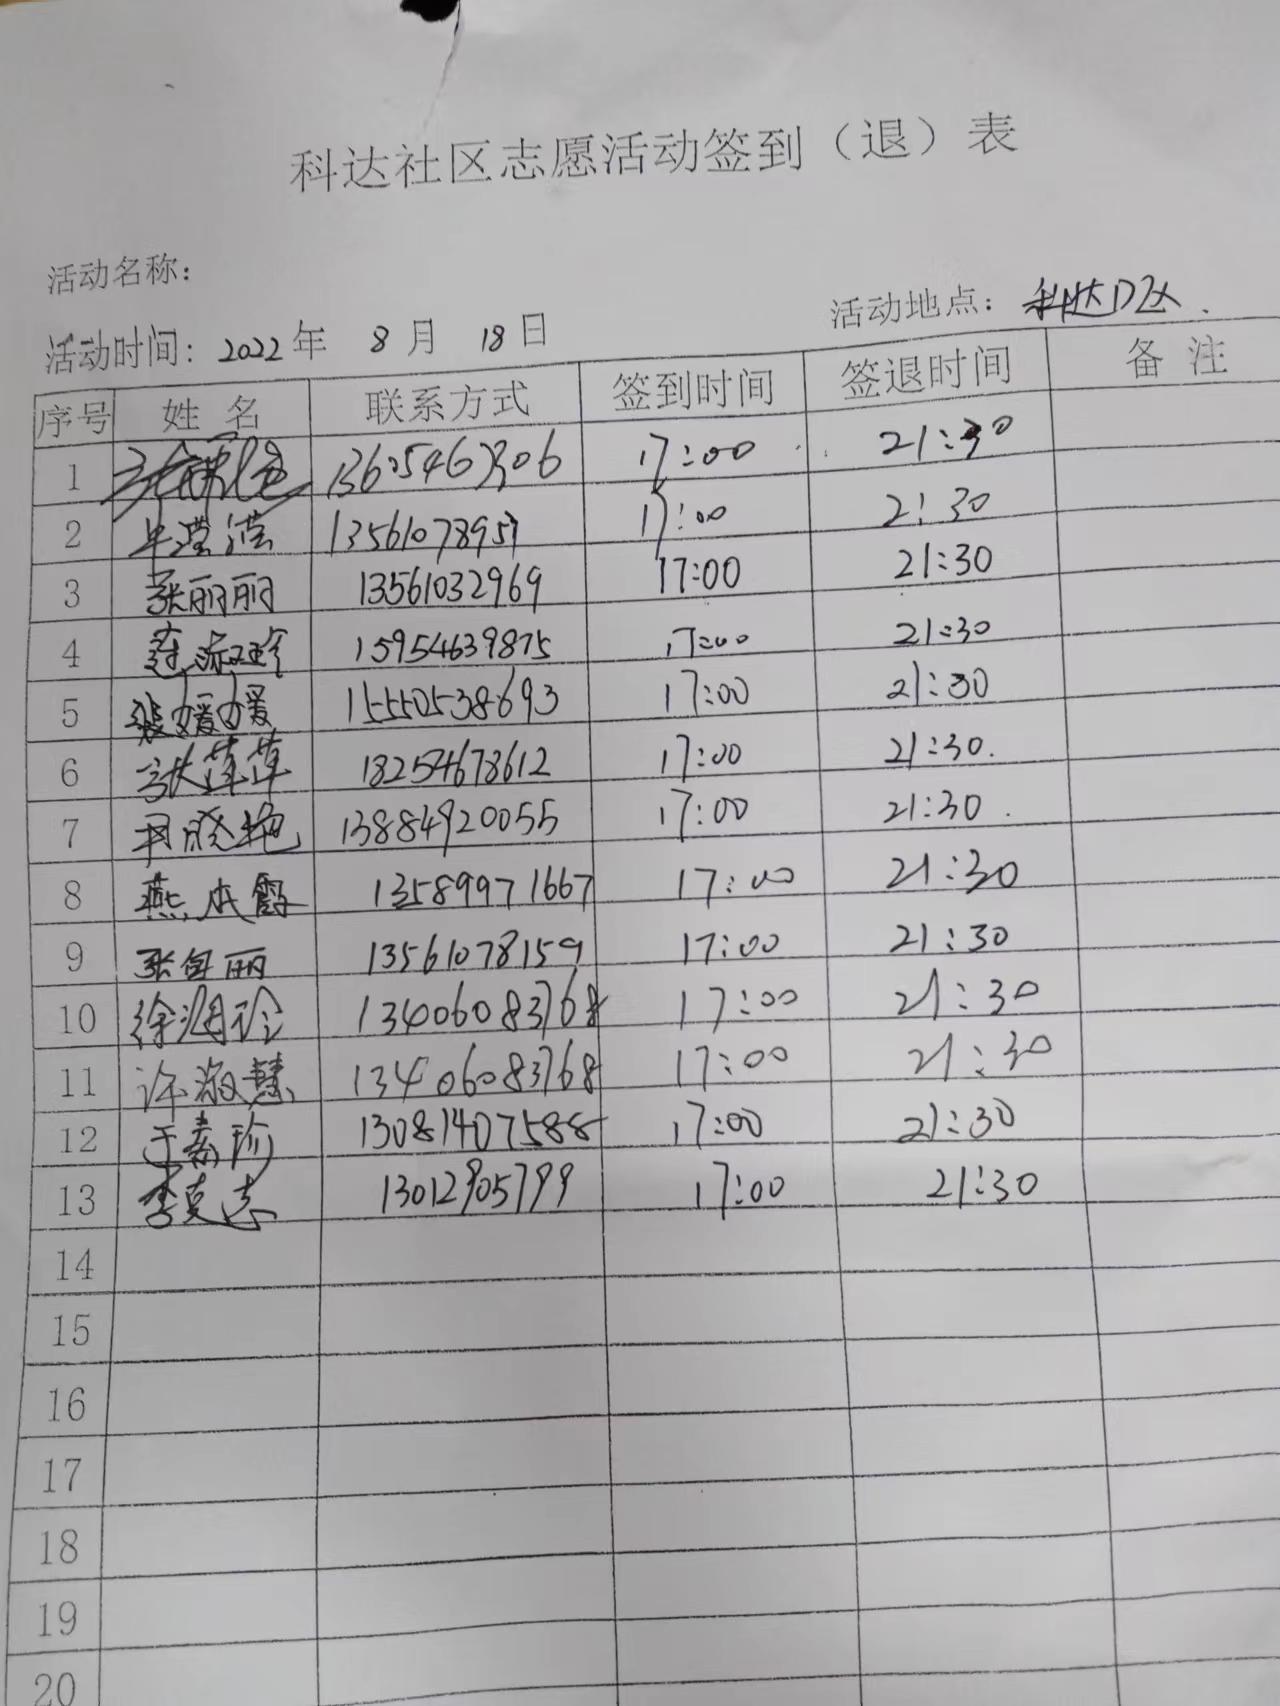 科达社区志愿活动签到（退）表
活动名称：
活动时间：2022年 8月 18日 活动地点：科达D区
序号 姓名 联系方式 签到时间 签退时间 备注
1 17:00 21:30
2 17:00 21:30
3 张丽丽 13561032969 17:00 21:30
4 15954639875 17:00 21:30
5 裴媛媛 15550538693 17:00 21:30
6 18254678612 17:00 21:30
7 尹晓艳 13884920055 17:00 21:30
8 燕本霞 13589971667 17:00 21:30
9 13561078159 17:00 21:30
10 徐润珍 13406083768 17:00 21:30
11 许淑慧 13406083768 17:00 21:30
12 于素珍 13081407588 17:00 21:30
13 李克志 13012905799 17:00 21:30
14
15
16
17
18
19
20